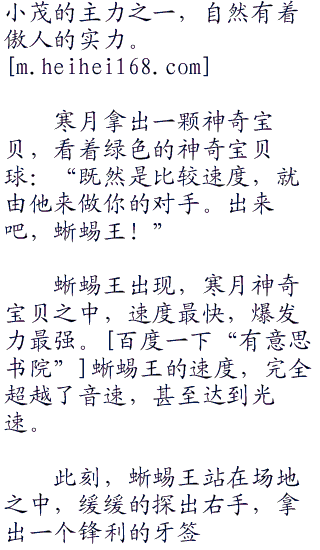 小茂的主力之一，自然有着
傲人的实力。
[m.heihei168.com]
寒月拿出一颗神奇宝
贝，看着绿色的神奇宝贝
球：“既然是比较速度，就
由他来做你的对手。出来
吧，蜥蜴王！”
蜥蜴王出现，寒月神奇
宝贝之中，速度最快，爆发
力最强。[百度一下“有意思
书院”]蜥蜴王的速度，完全
超越了音速，甚至达到光
速。
此刻，蜥蜴王站在场地
之中，缓缓的探出右手，拿
出一个锋利的牙签